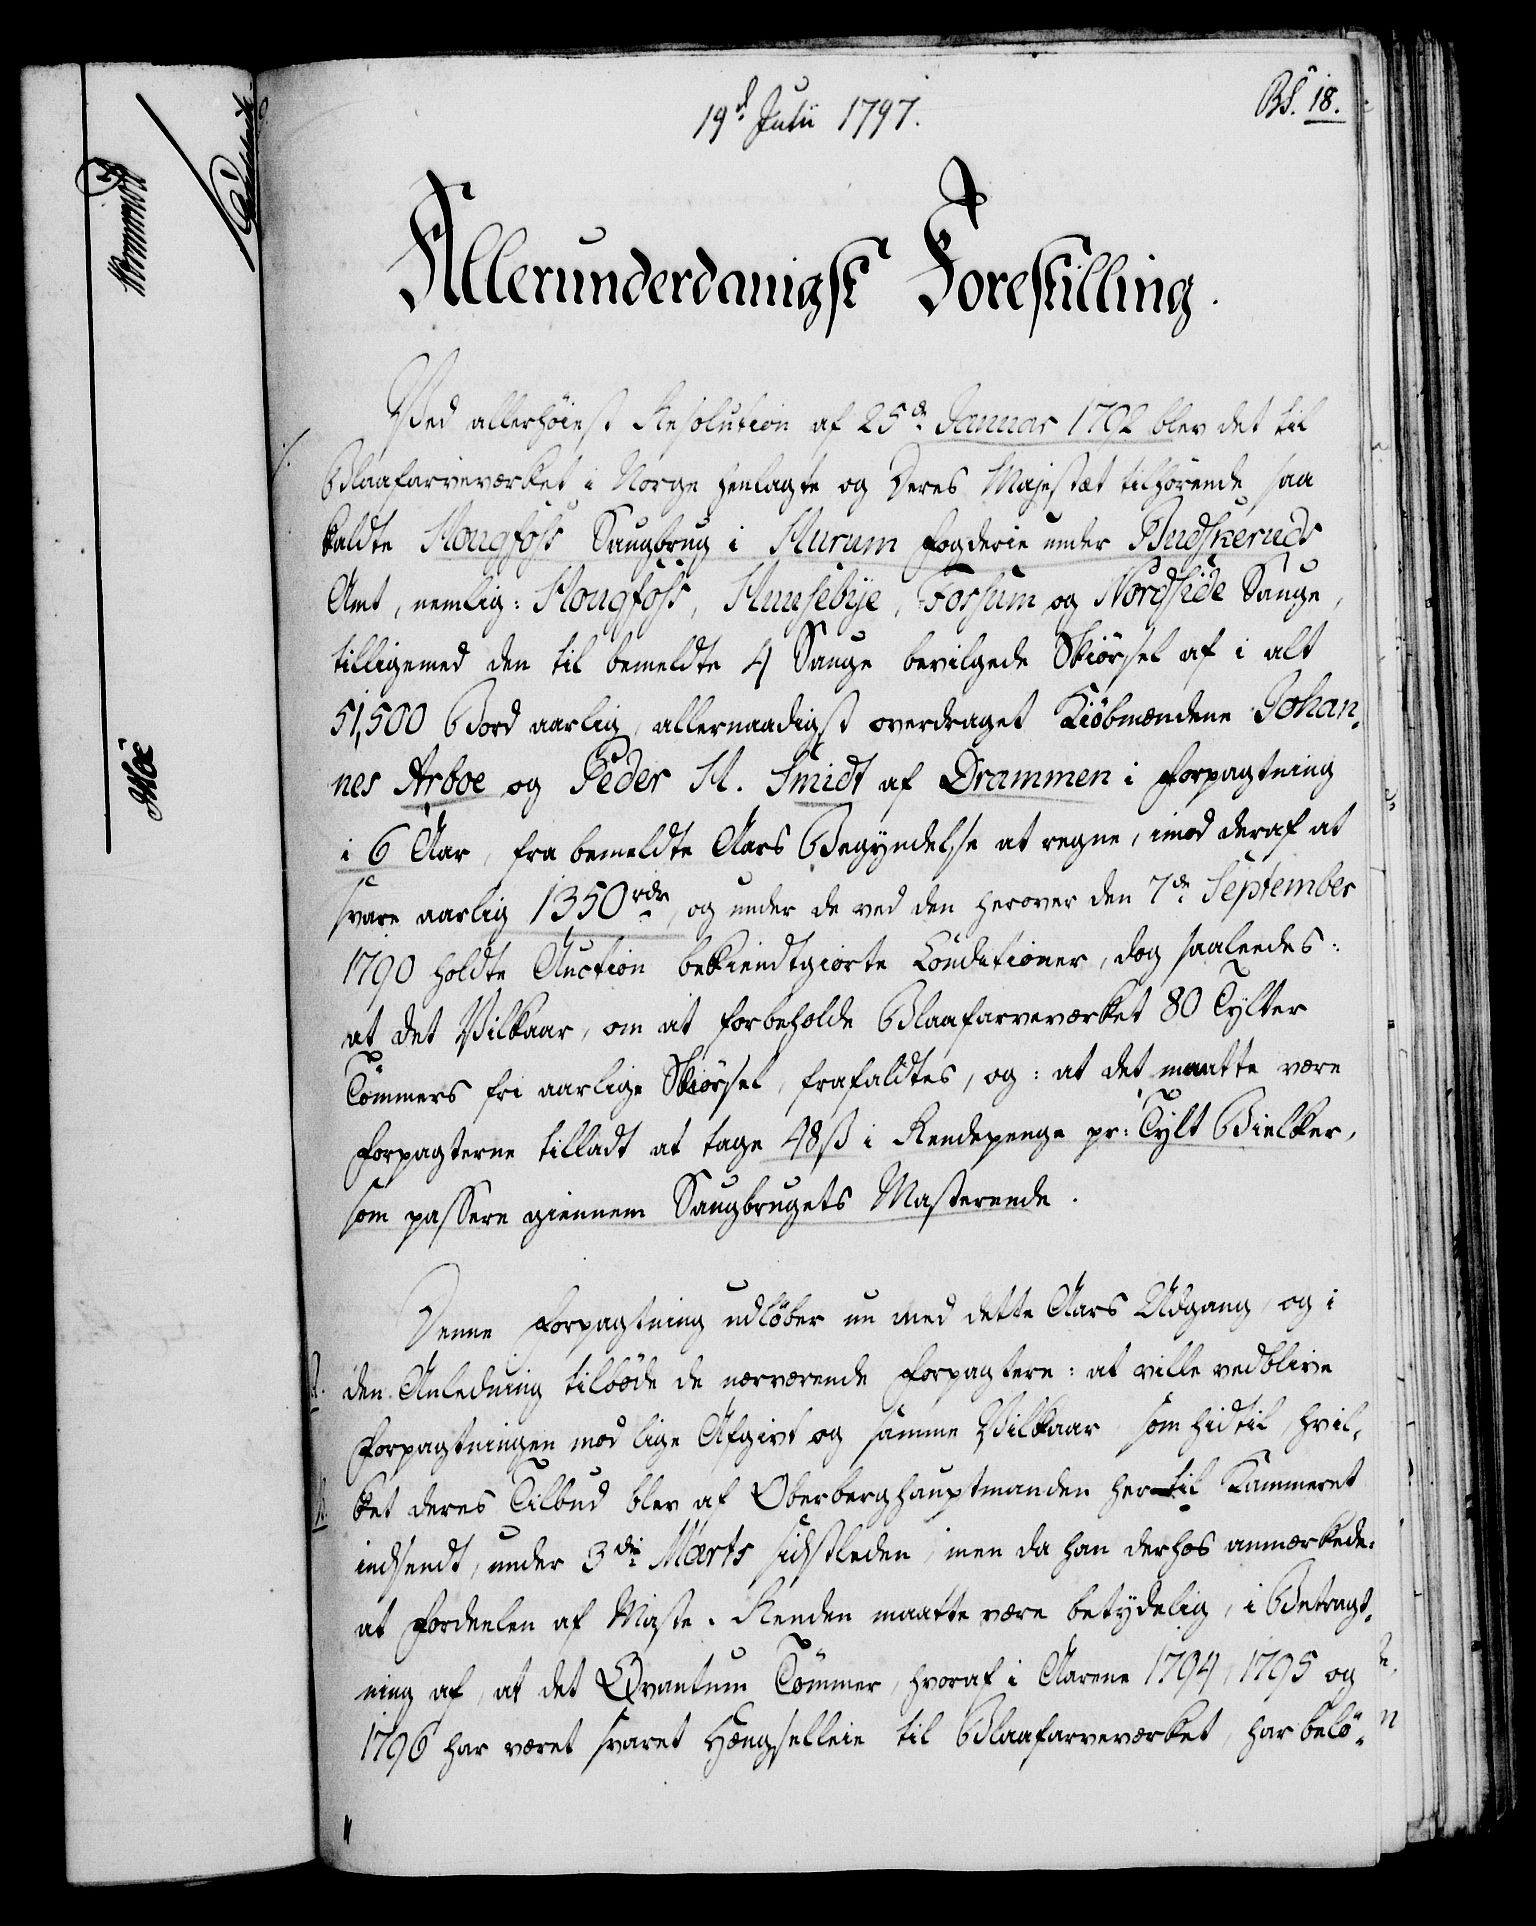 19d Julii 1797.
BS. 18.
Allerunderdanigst Forestilling.
Ved allerhöiest Resolution af 25de Januar 1792 blev det til
Blaafarveværket i Norge henlagte og Deres Majestæt tilhörende saa
kaldte Hougfoss Saugbrug i Hurum Fogderie under Budskeruds
Amt, nemlig: Hougfoss, Hunsebye, Fossum og Nordside Sauge,
tilligemed den til bemeldte 4 Sauge bevilgede Skiörsel af i alt
51,500 Bord aarlig, allernaadigst overdraget Kiöbmændene Johan-
nes Arboe og Peder H. Smidt af Drammen i Forpagtning
i 6 Aar, fra bemeldte Aars Begyndelse at regne, imod deraf at
svare aarlig 1350rdr, og under de ved den herover den 7de September
1790 holdte Auction bekiendtgiorte Conditioner, dog saaleedes:
at det Vilkaar, om at forbeholde Blaafarveværket 80 Tylter
Tömmers fri aarlige Skiörsel, frafaldtes, og: at det maatte være
Forpagterne tilladt at tage 48ß i Rendepenge pr: Tylt Bielker,
som passere giennem Saugbrugets Masterende.
Denne Forpagtning udlöber nu med dette Aars Udgang, og i
den Anledning tilböde de nærværende Forpagtere: at ville vedblive
Forpagtningen mod lige Afgivt og samme Vilkaar som hidtil, hvil-
ket deres Tilbud blev af Oberberghauptmanden her til Kammeret
indsendt, under 3die Marts sidstleden, men da han derhos anmærkede:
at Fordeelen af Maste-Renden maatte være betydelig, i Betragt-
ning af, at det Qvantum Tömmer, hvoraf i Aarene 1794, 1795 og
1796 har været svaret Hængselleie til Blaafarveværket, har belö-